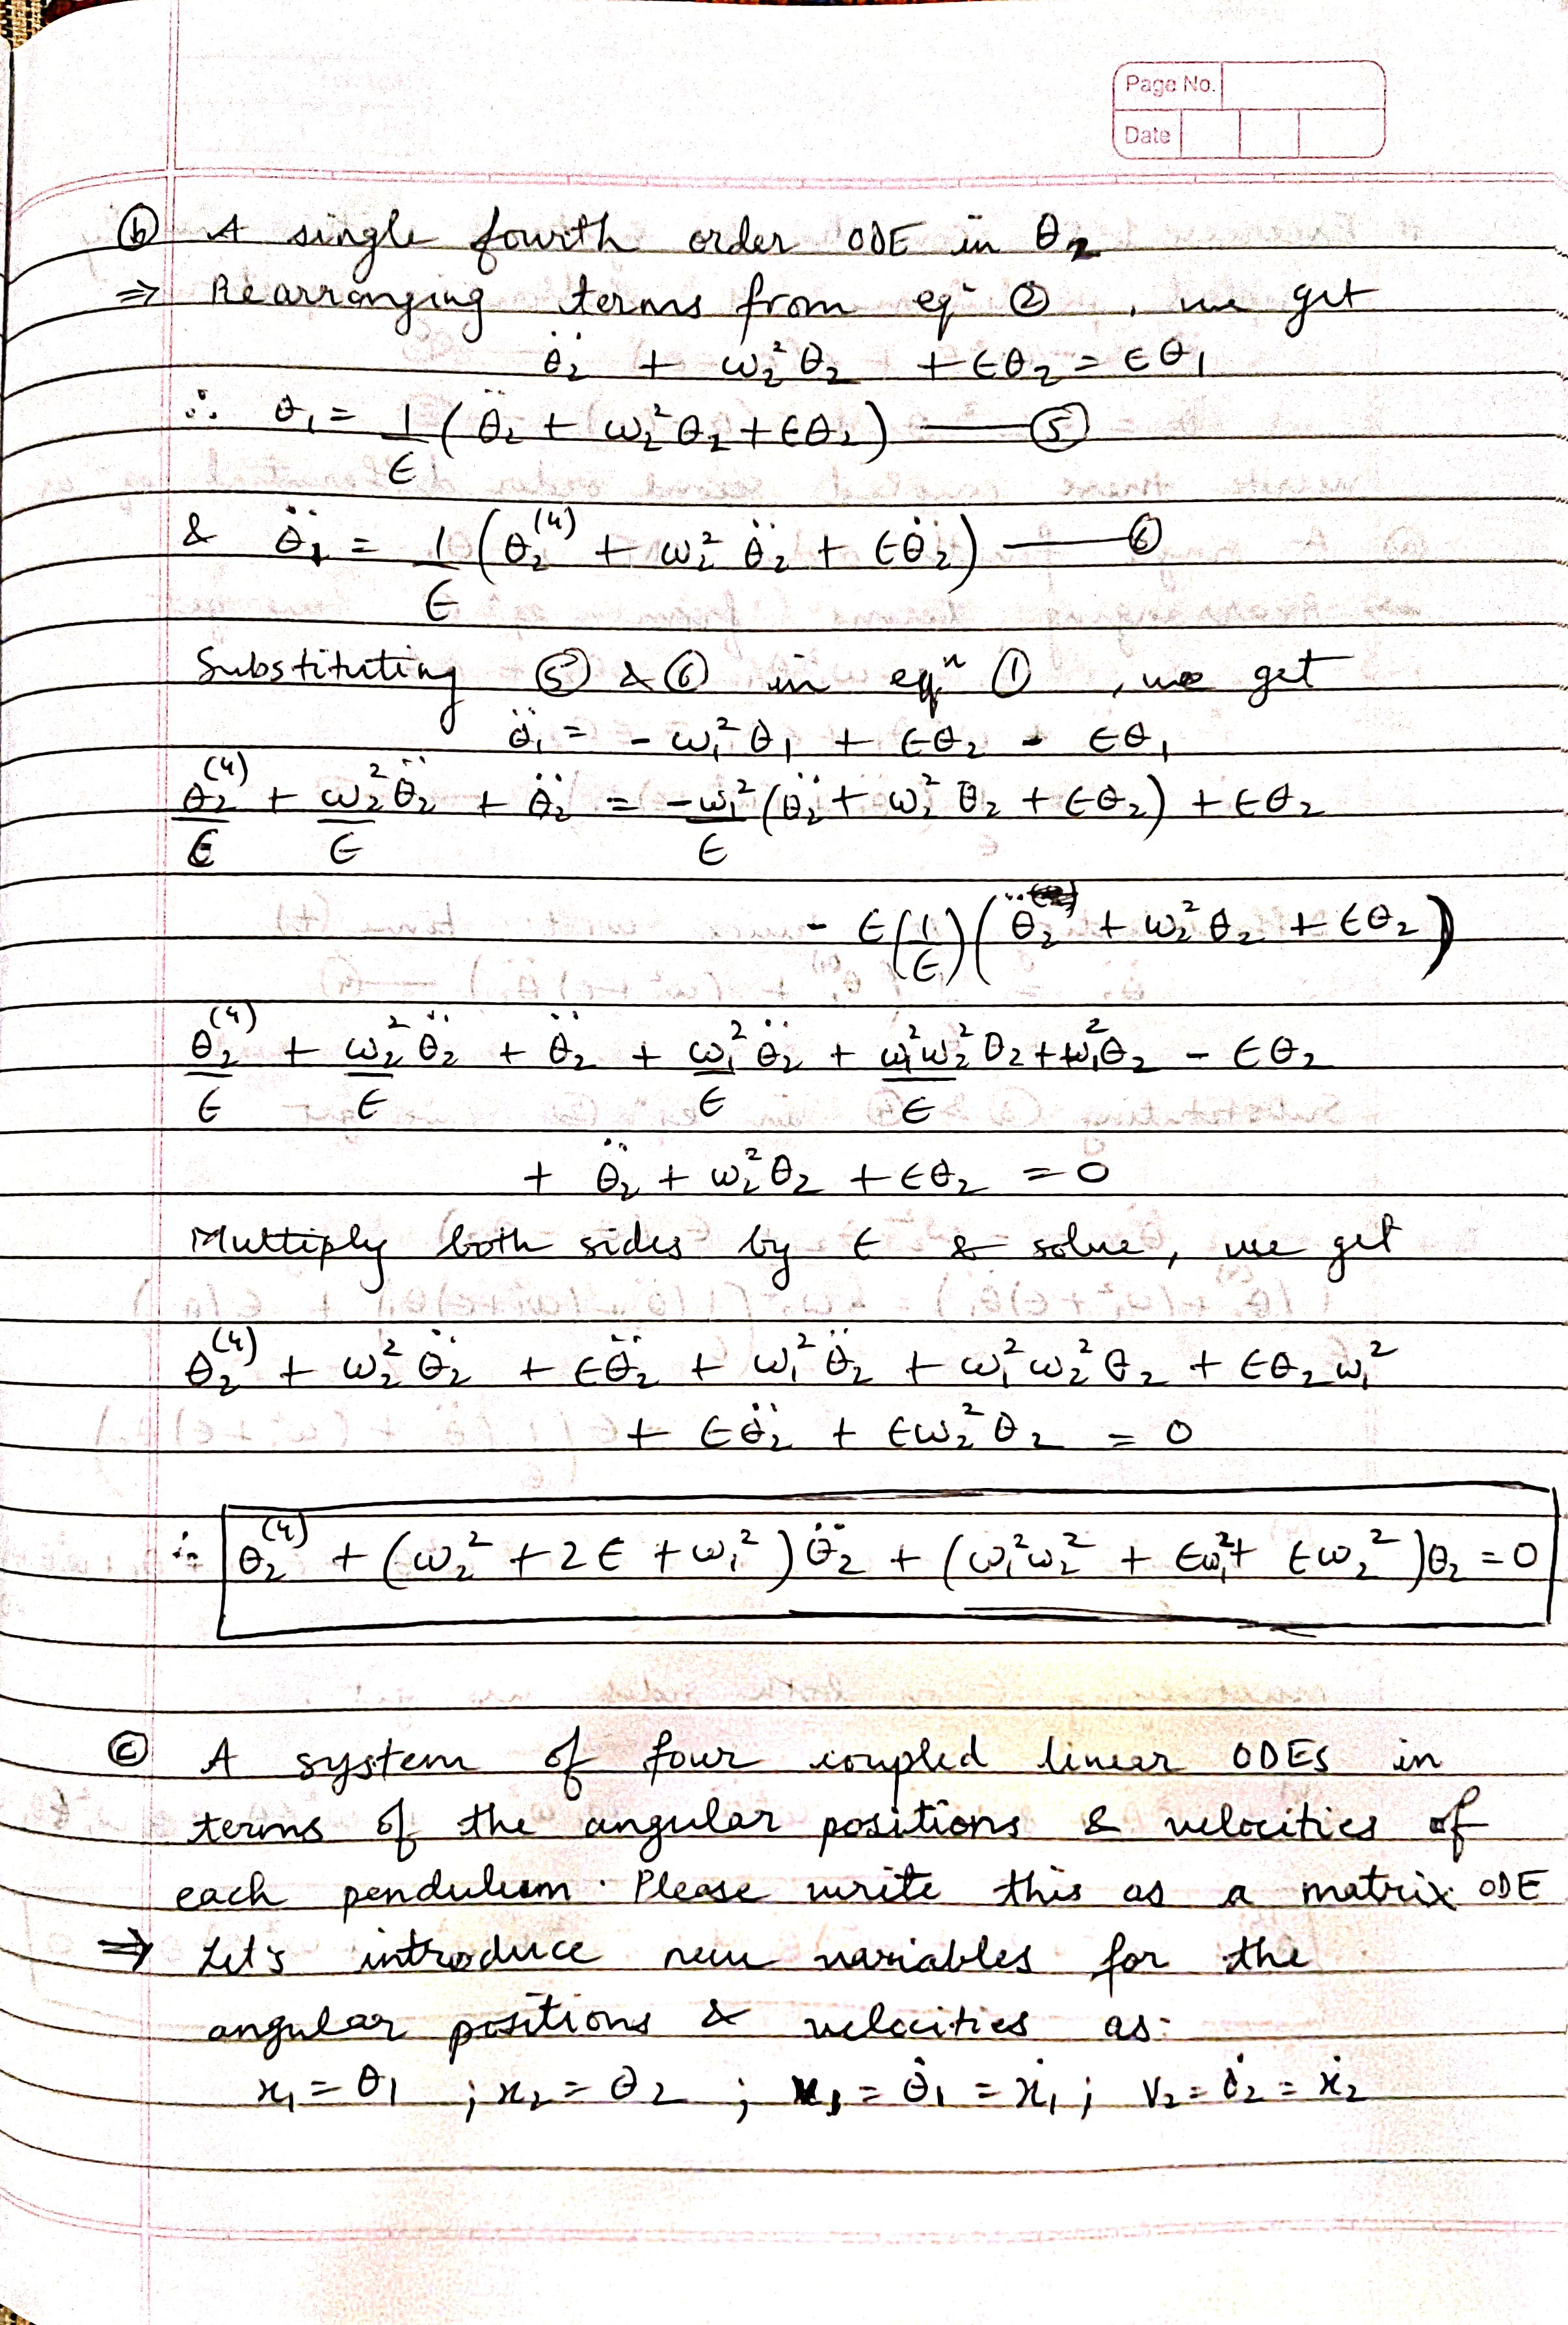 Page No.
Date
ⓑ A single fourth order ODE in θ₂
⇒ Rearranging terms from eqⁿ ②, we get
θ̈₂ + ω₂²θ₂ + ϵθ₂ = ϵθ₁
∴ θ₁ = 1/ϵ (θ̈₂ + ω₂²θ₂ + ϵθ₂) —— ⑤
& θ̈₁ = 1/ϵ (θ₂⁽⁴⁾ + ω₂² θ̈₂ + ϵθ̈₂) —— ⑥
Substituting ⑤ & ⑥ in eqⁿ ①, we get
θ̈₁ = -ω₁²θ₁ + ϵθ₂ - ϵθ₁
θ₂⁽⁴⁾/ϵ + ω₂²/ϵ θ̈₂ + θ̈₂ = -ω₁²/ϵ (θ̈₂ + ω₂² θ₂ + ϵθ₂) + ϵθ₂
- ϵ(1/ϵ)(θ̈₂ + ω₂²θ₂ + ϵθ₂)
θ₂⁽⁴⁾/ϵ + ω₂²/ϵ θ̈₂ + θ̈₂ + ω₁²/ϵ θ̈₂ + ω₁²ω₂²/ϵ θ₂ + ω₁²θ₂ - ϵθ₂
+ θ̈₂ + ω₂²θ₂ + ϵθ₂ = 0
Multiply both sides by ϵ & solve, we get
θ₂⁽⁴⁾ + ω₂² θ̈₂ + ϵθ̈₂ + ω₁² θ̈₂ + ω₁²ω₂²θ₂ + ϵθ₂ω₁²
+ ϵθ̈₂ + ϵω₂²θ₂ = 0
∴ θ₂⁽⁴⁾ + (ω₂² + 2ϵ + ω₁²)θ̈₂ + (ω₁²ω₂² + ϵω₁² + ϵω₂²)θ₂ = 0
ⓒ A system of four coupled linear ODEs in
terms of the angular positions & velocities of
each pendulum. Please write this as a matrix ODE
⇒ Let's introduce new variables for the
angular positions & velocities as:
x₁ = θ₁ ; x₂ = θ₂ ; v₁ = θ̇₁ = ẋ₁ ; v₂ = θ̇₂ = ẋ₂